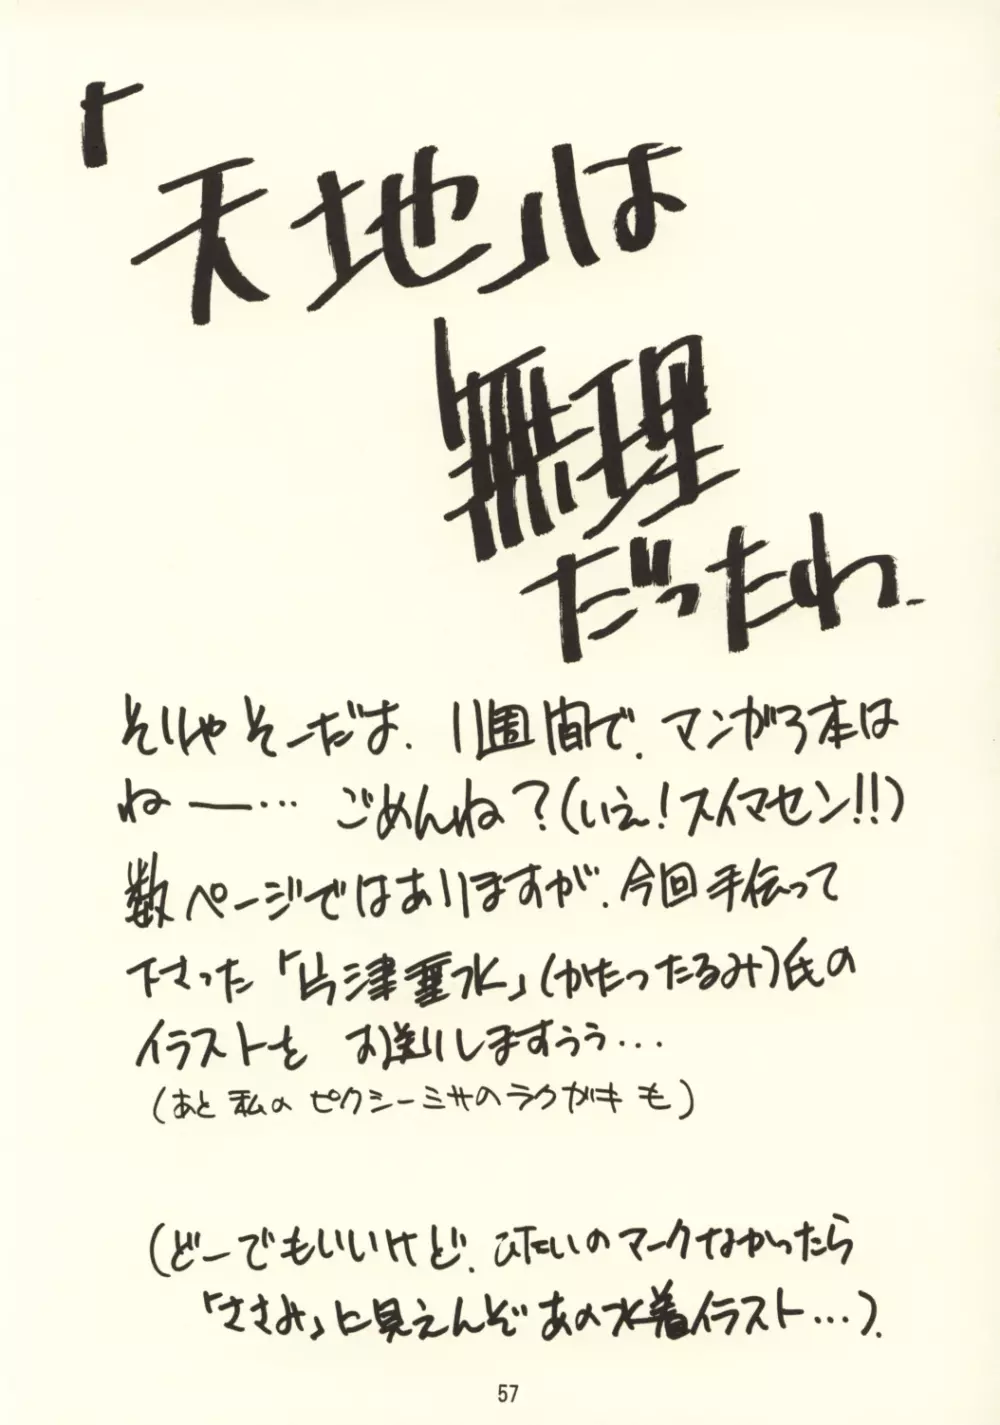 「天地」は
「無理
だったわ.
そりゃそーだよ.1週間で.マンガ3本は
ねー… ごめんね?(いえ!スイマセン!!)
数ページではありますが.今回手伝って
下さった「片津垂水」(かたつたるみ)氏の
イラストを お送りしますぅぅ…
(あと 私の ピクシーミサのラクガキ も)
(どーでもいいけど.ひたいのマークなかったら
「ささみ」に見えんぞあの水着イラスト…).
57